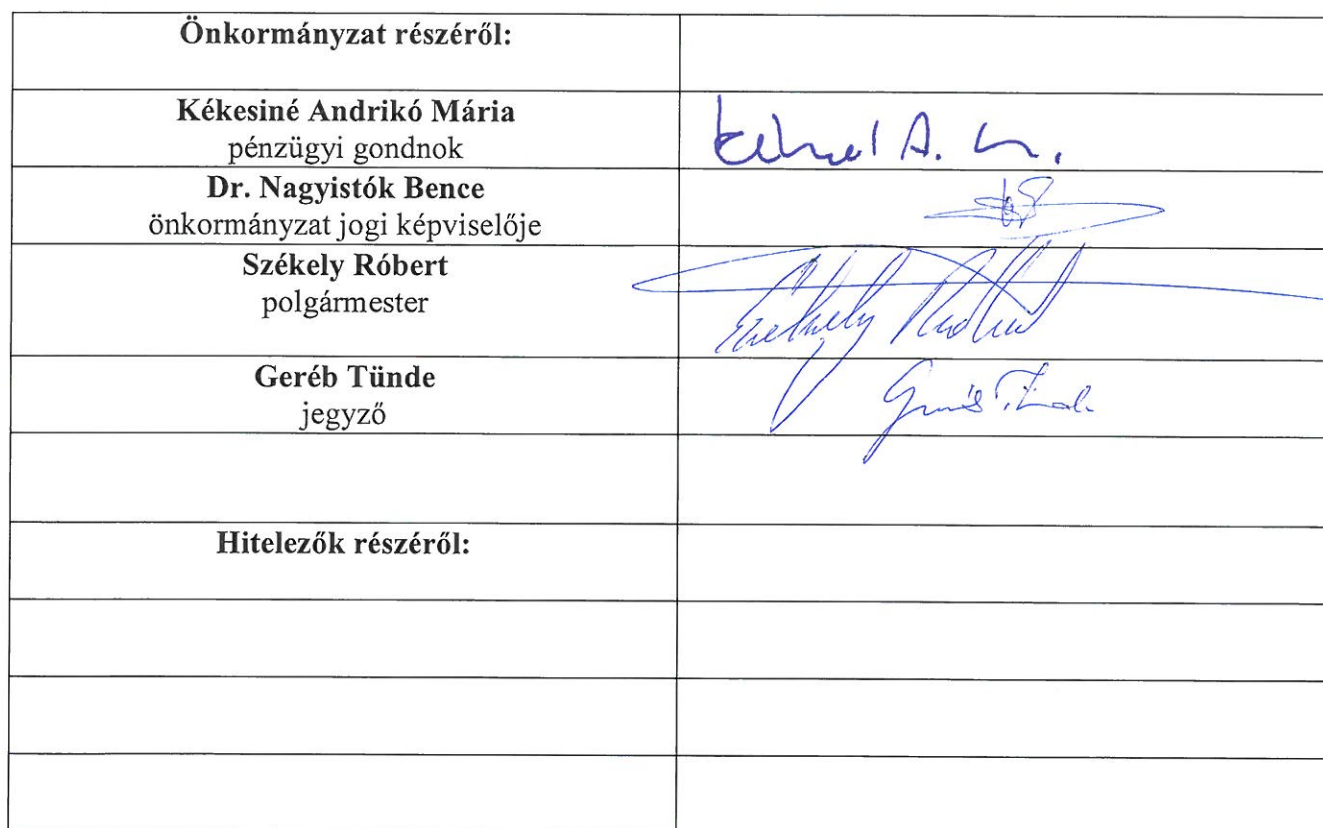 Önkormányzat részéről:
Kékesiné Andrikó Mária
pénzügyi gondnok
Dr. Nagyistók Bence
önkormányzat jogi képviselője
Székely Róbert
polgármester
Geréb Tünde
jegyző
Hitelezők részéről: